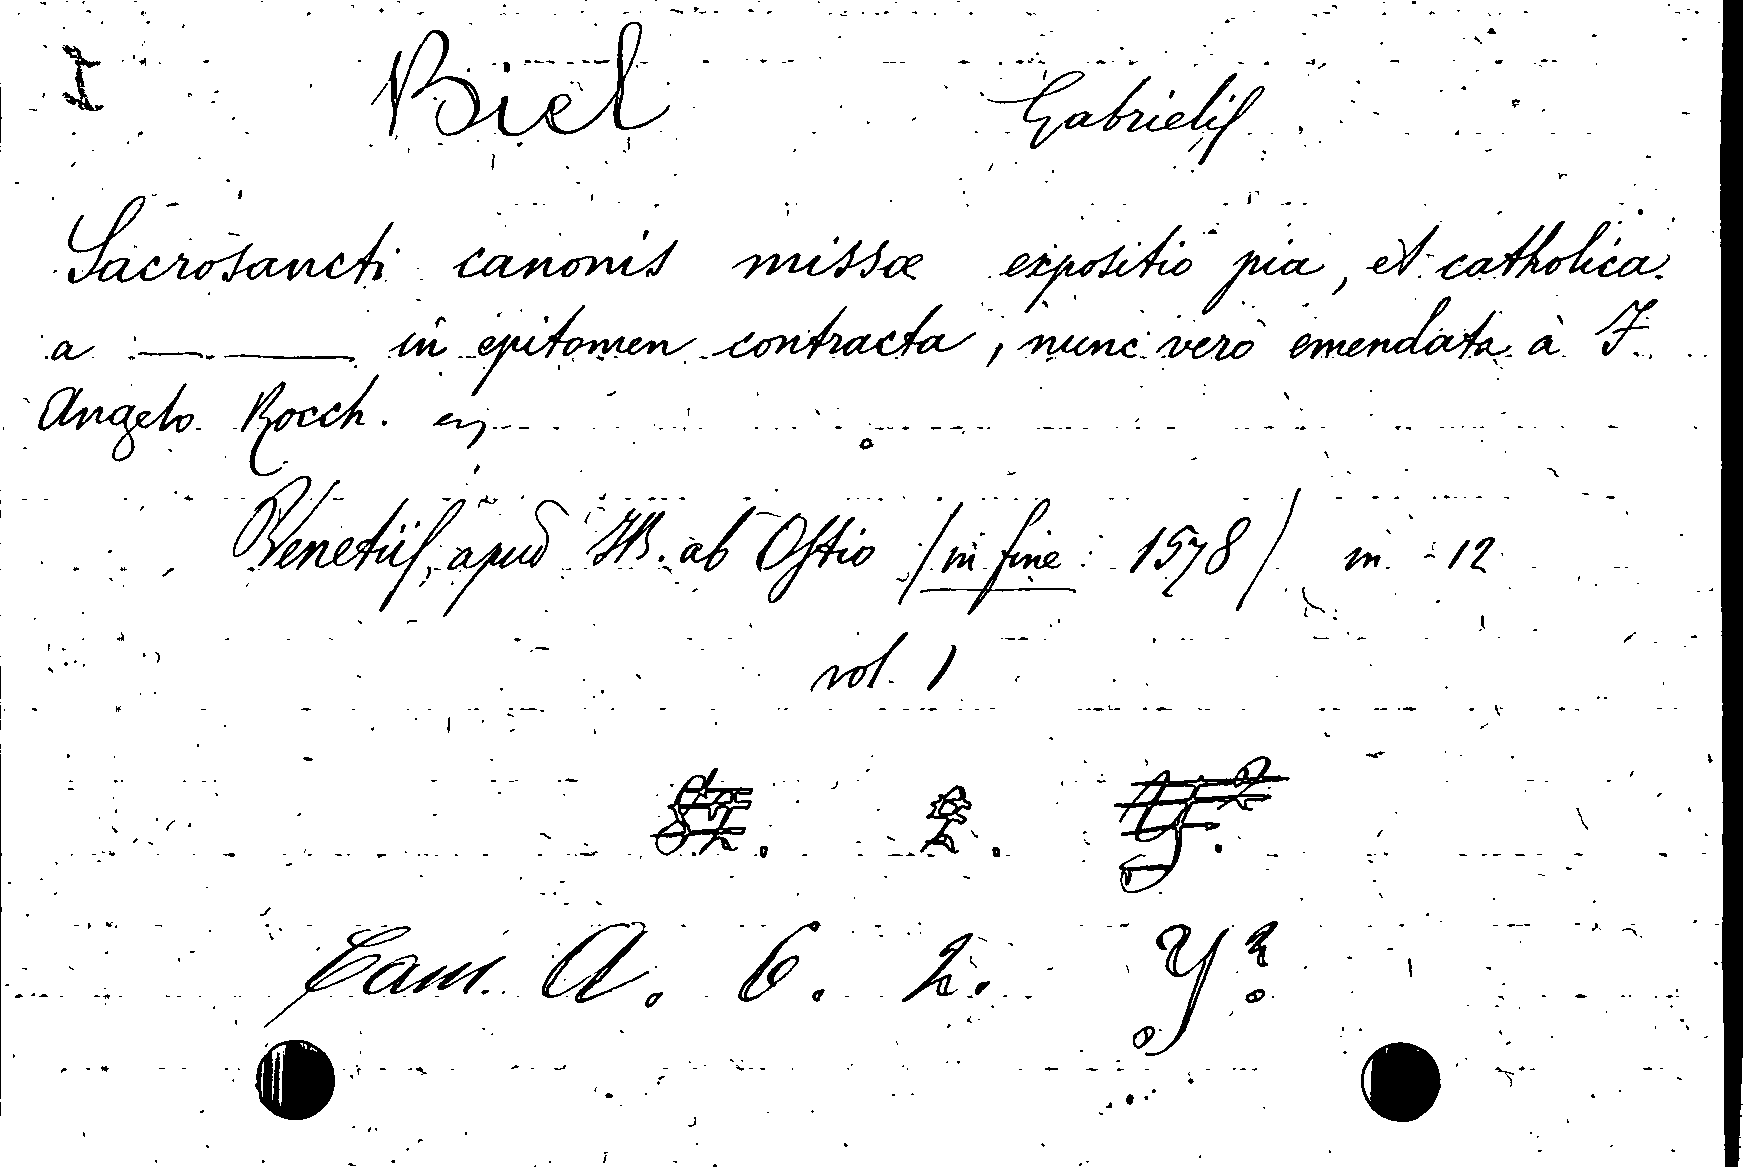 I Biel Gabrielis
Sacrosancti canonis missæ expositio pia, et catholica.
a ——— in epitomen contracta, nunc verò emendata à F.
Angelo Rocch.
Venetiis, apud JB. ab Ostio (in fine: 1578) in -12
vol. 1
Cam. A. 6. 2. Y²